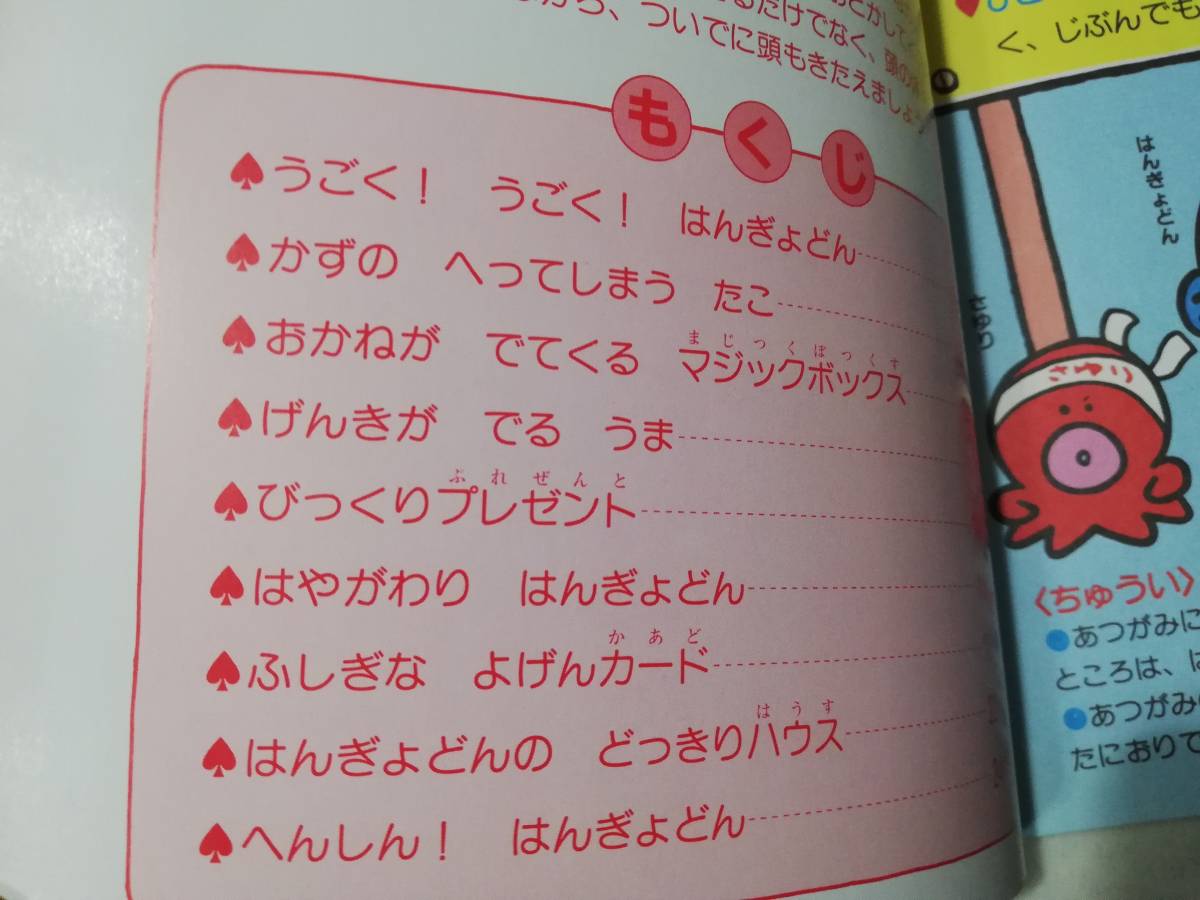 ついでに頭もきたえましょ
もくじ
♠うごく！　うごく！　はんぎょどん
♠かずの　へってしまう　たこ
まじっくぼっくす
♠おかねが　でてくる　マジックボックス
♠げんきが　でる　うま
ぷれぜんと
♠びっくりプレゼント
♠はやがわり　はんぎょどん
かあど
♠ふしぎな　よげんカード
はうす
♠はんぎょどんの　どっきりハウス
♠へんしん！　はんぎょどん
く、じぶんでも
はんぎょどん
さゆり
さゆり
〈ちゅうい〉
●あつがみに
ところは、
●あつがみ
たにおりて